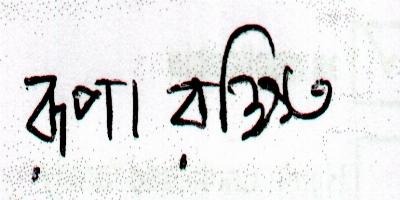 রূপা রক্ষিত